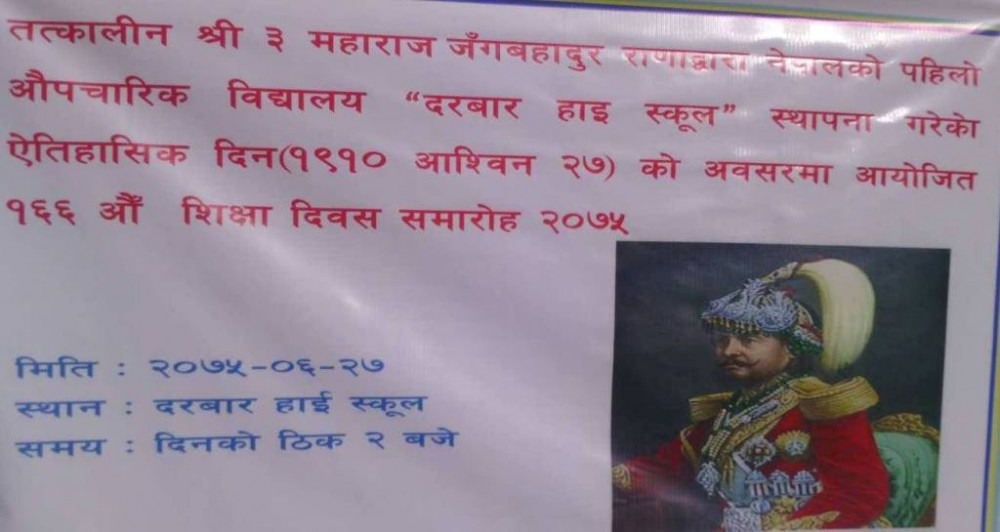 तत्कालीन श्री ३ महाराज जँगबहादुर राणाद्वारा नेपालको पहिलो
औपचारिक विद्यालय “दरबार हाइ स्कूल” स्थापना गरेको
ऐतिहासिक दिन(१९१० आश्विन २७) को अवसरमा आयोजित
१६६ औँ शिक्षा दिवस समारोह २०७५
मिति : २०७५-०६-२७
स्थान : दरबार हाई स्कूल
समय : दिनको ठिक २ बजे